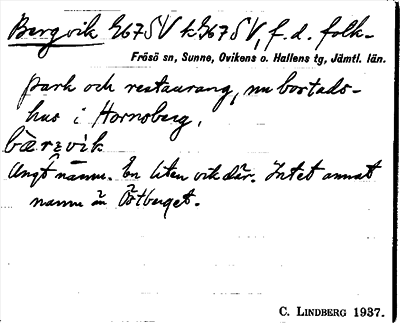 Bergvik G67SV k G67SV, f. d. folk-
Frösö sn, Sunne, Ovikens o. Hallens tg, Jämtl. län.
park och restaurang, nu bostads-
hus i Hornsberg.
bærvik
Angt namn. En liten vik där. Intet annat
namn än Östberget.
C. LINDBERG 1937.